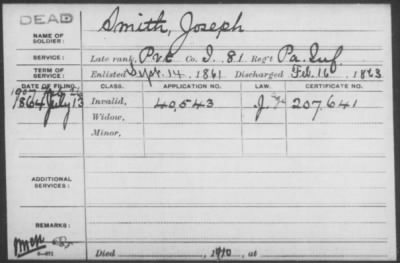 DEAD
NAME OF SOLDIER: Smith, Joseph
SERVICE: Late rank, Pvt Co. I. 81. Reg't Pa. Inf.
TERM OF SERVICE: Enlisted Sept. 14. 1861 Discharged Feb. 16 1863
DATE OF FILING. CLASS. APPLICATION NO. LAW. CERTIFICATE NO.
1864 July 13 Invalid, 40,543 207,641
Widow,
Minor,
ADDITIONAL SERVICES:
REMARKS:
Died 1910, at